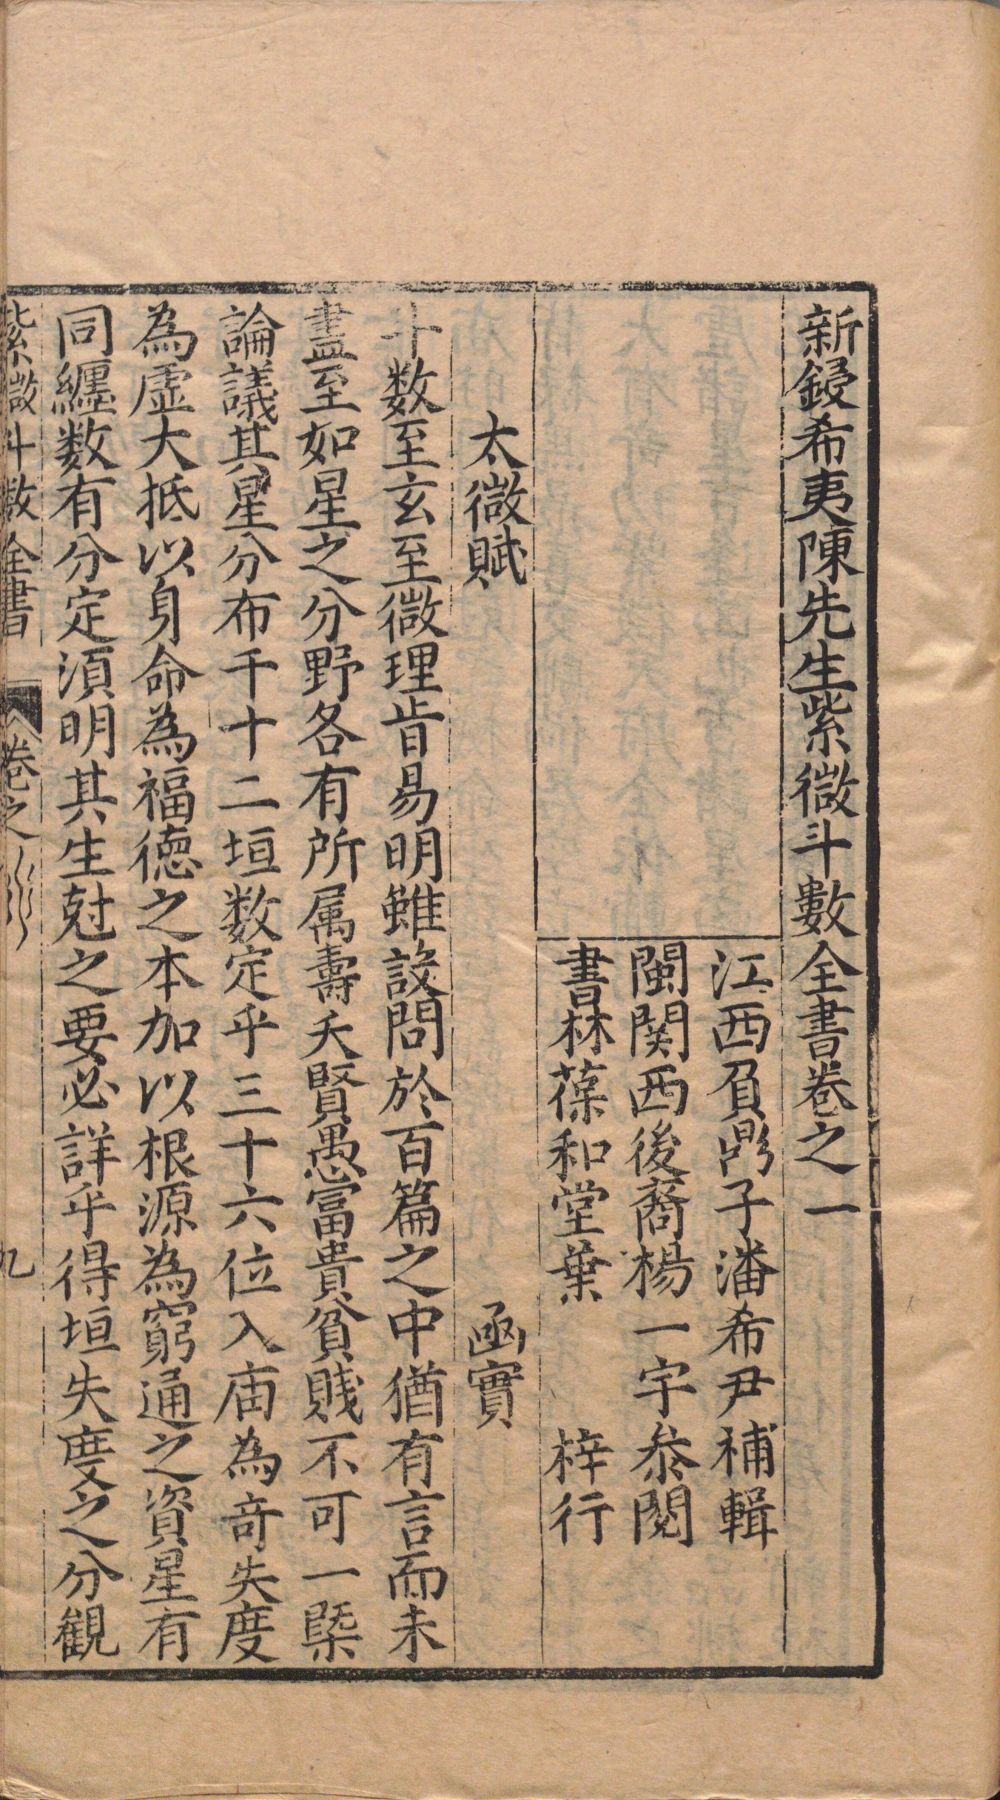 新鋟希夷陳先生紫微斗數全書卷之一
江西負鼎子潘希尹補輯
閩関西後裔楊一宇叅閱
書林葆和堂葉 梓行
太微賦 函實
斗数至玄至微理㫖易明雖設問於百篇之中猶有言而未
盡至如星之分野各有所属壽夭賢愚冨貴貧賤不可一槩
論議其星分布千十二垣数定乎三十六位入庙為竒失度
為虚大抵以身命為福徳之本加以根源為窮通之資星有
同纏数有分定湏明其生尅之要必詳乎得垣失度之分観
紫微斗数全書 卷之 九